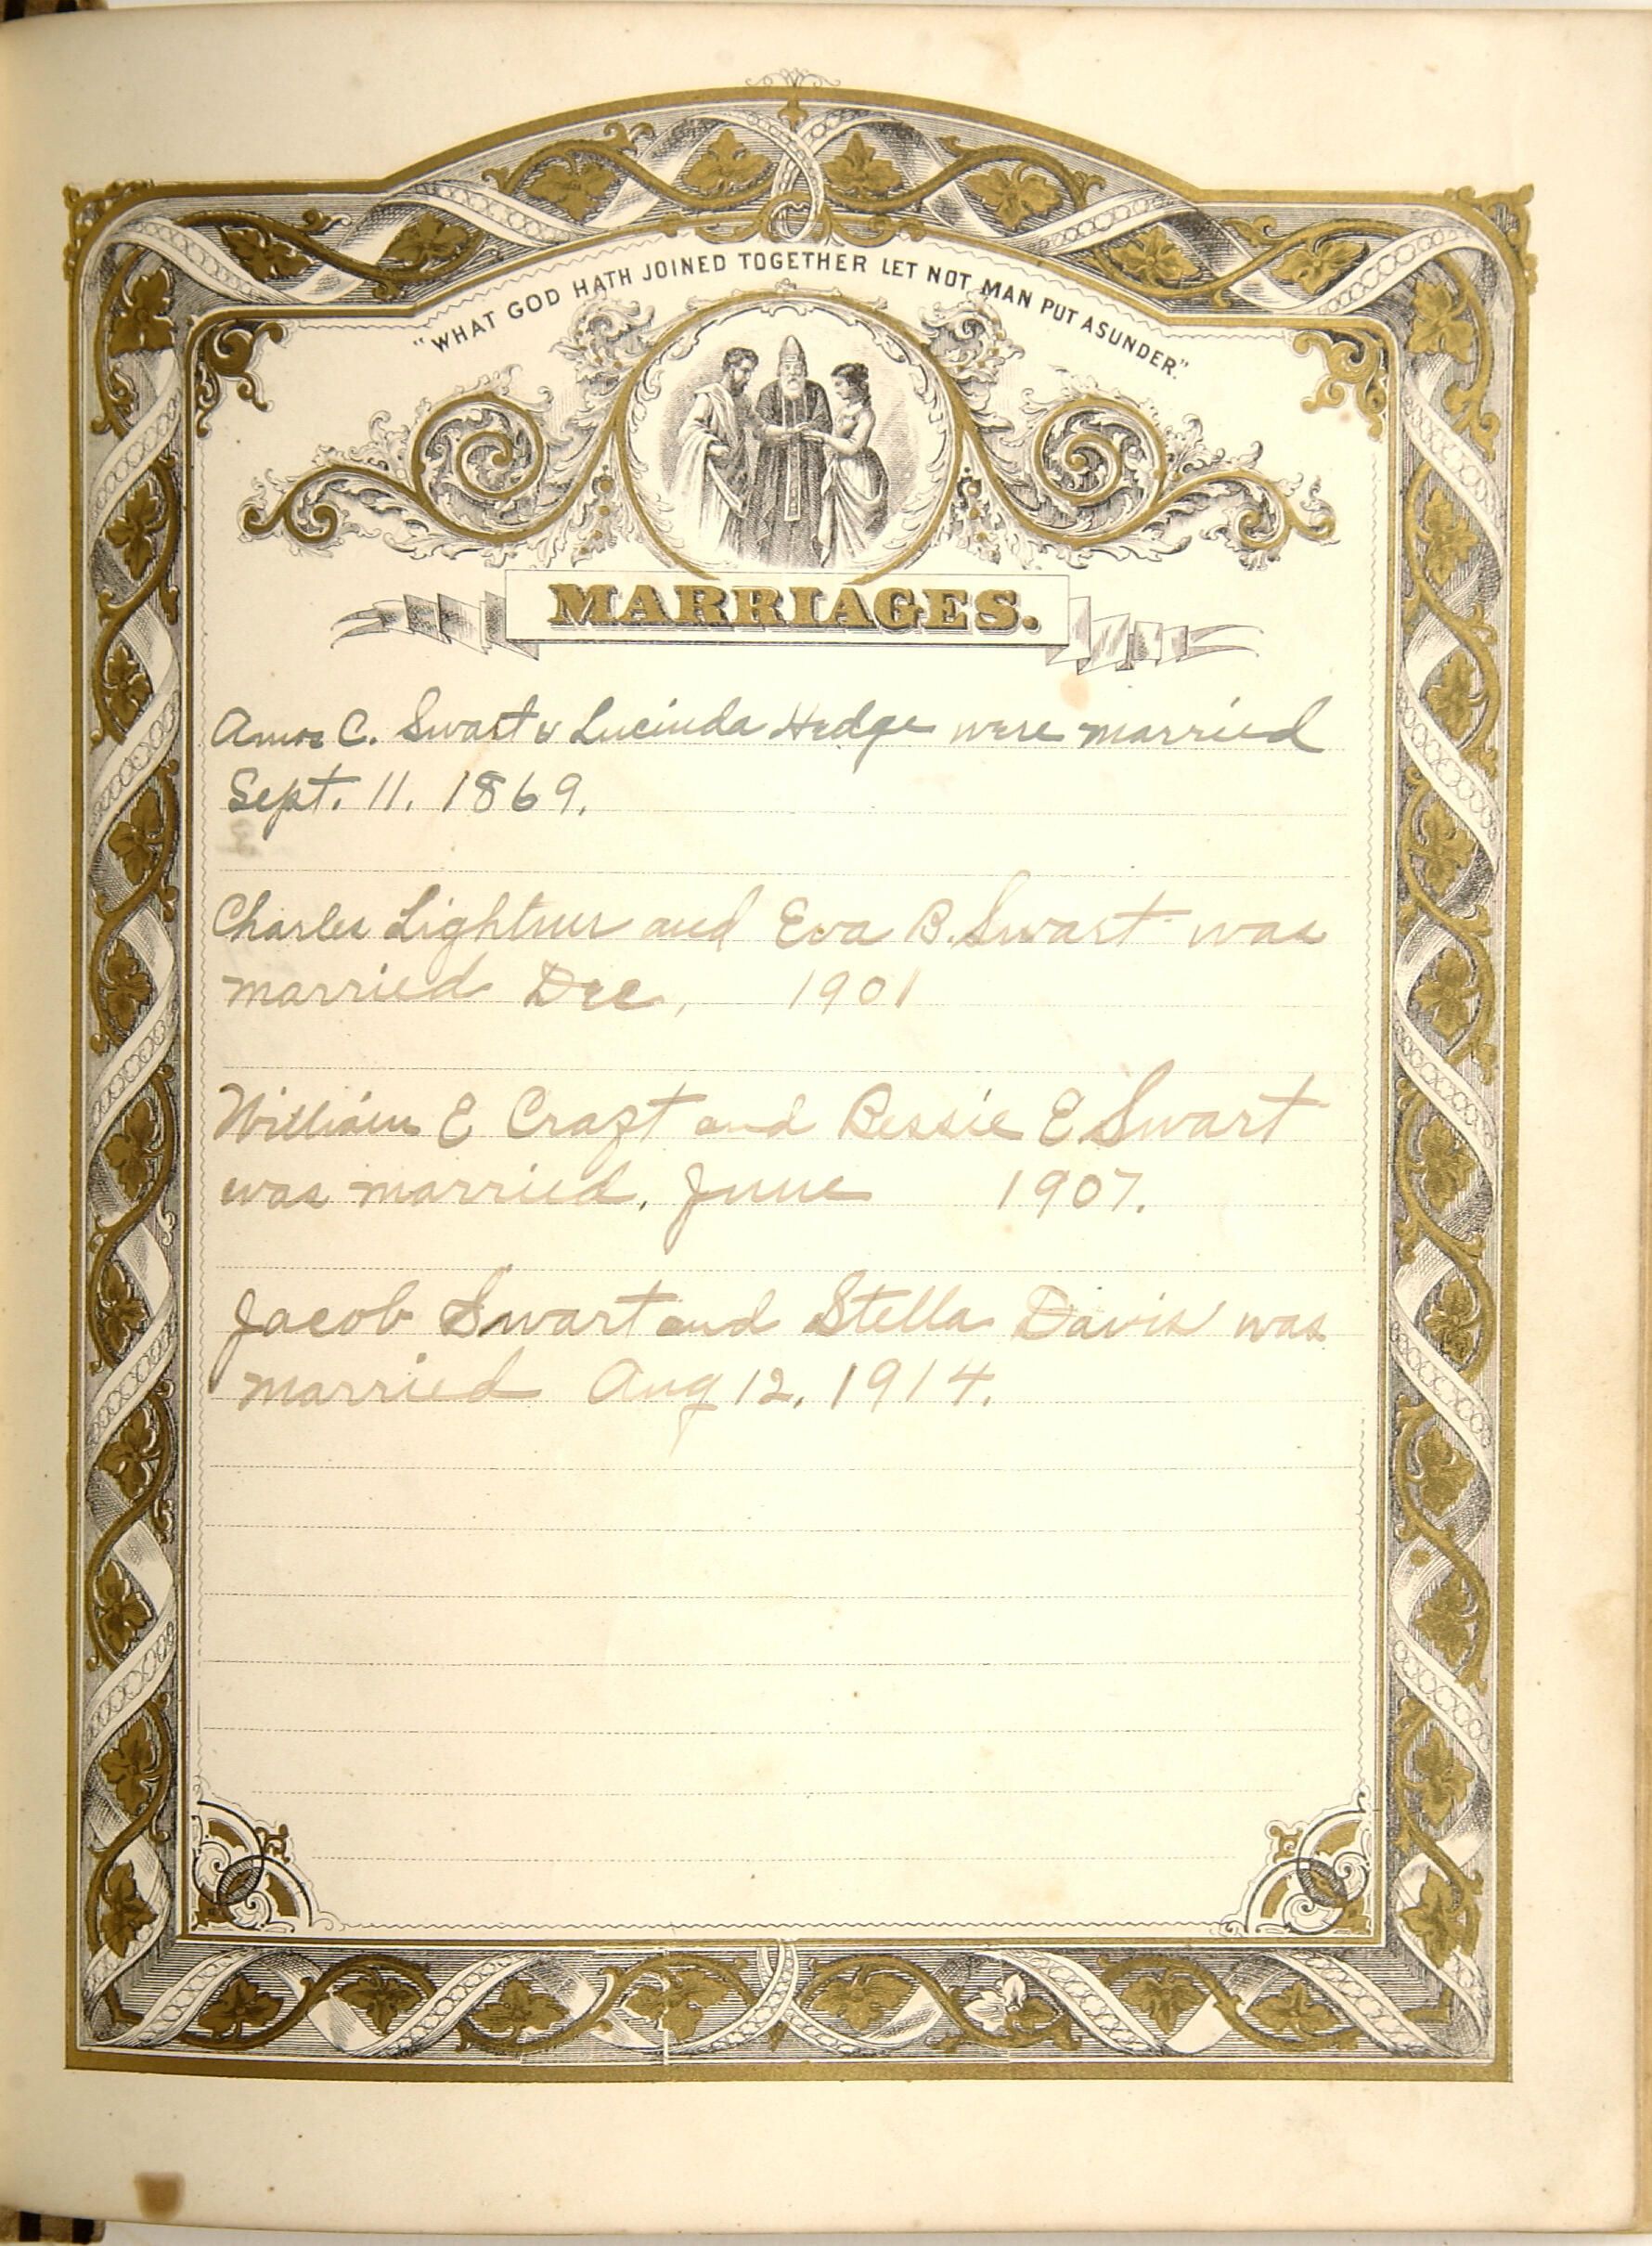 "WHAT GOD HATH JOINED TOGETHER LET NOT MAN PUT ASUNDER."
MARRIAGES.
Amos C. Swart & Lucinda Hedge were married
Sept. 11. 1869.
Charles Lightner and Eva B. Swart was
married Dec, 1901
William E Craft and Bessie E Swart
was married. June 1907.
Jacob Swart and Stella Davis was
married Aug 12. 1914.